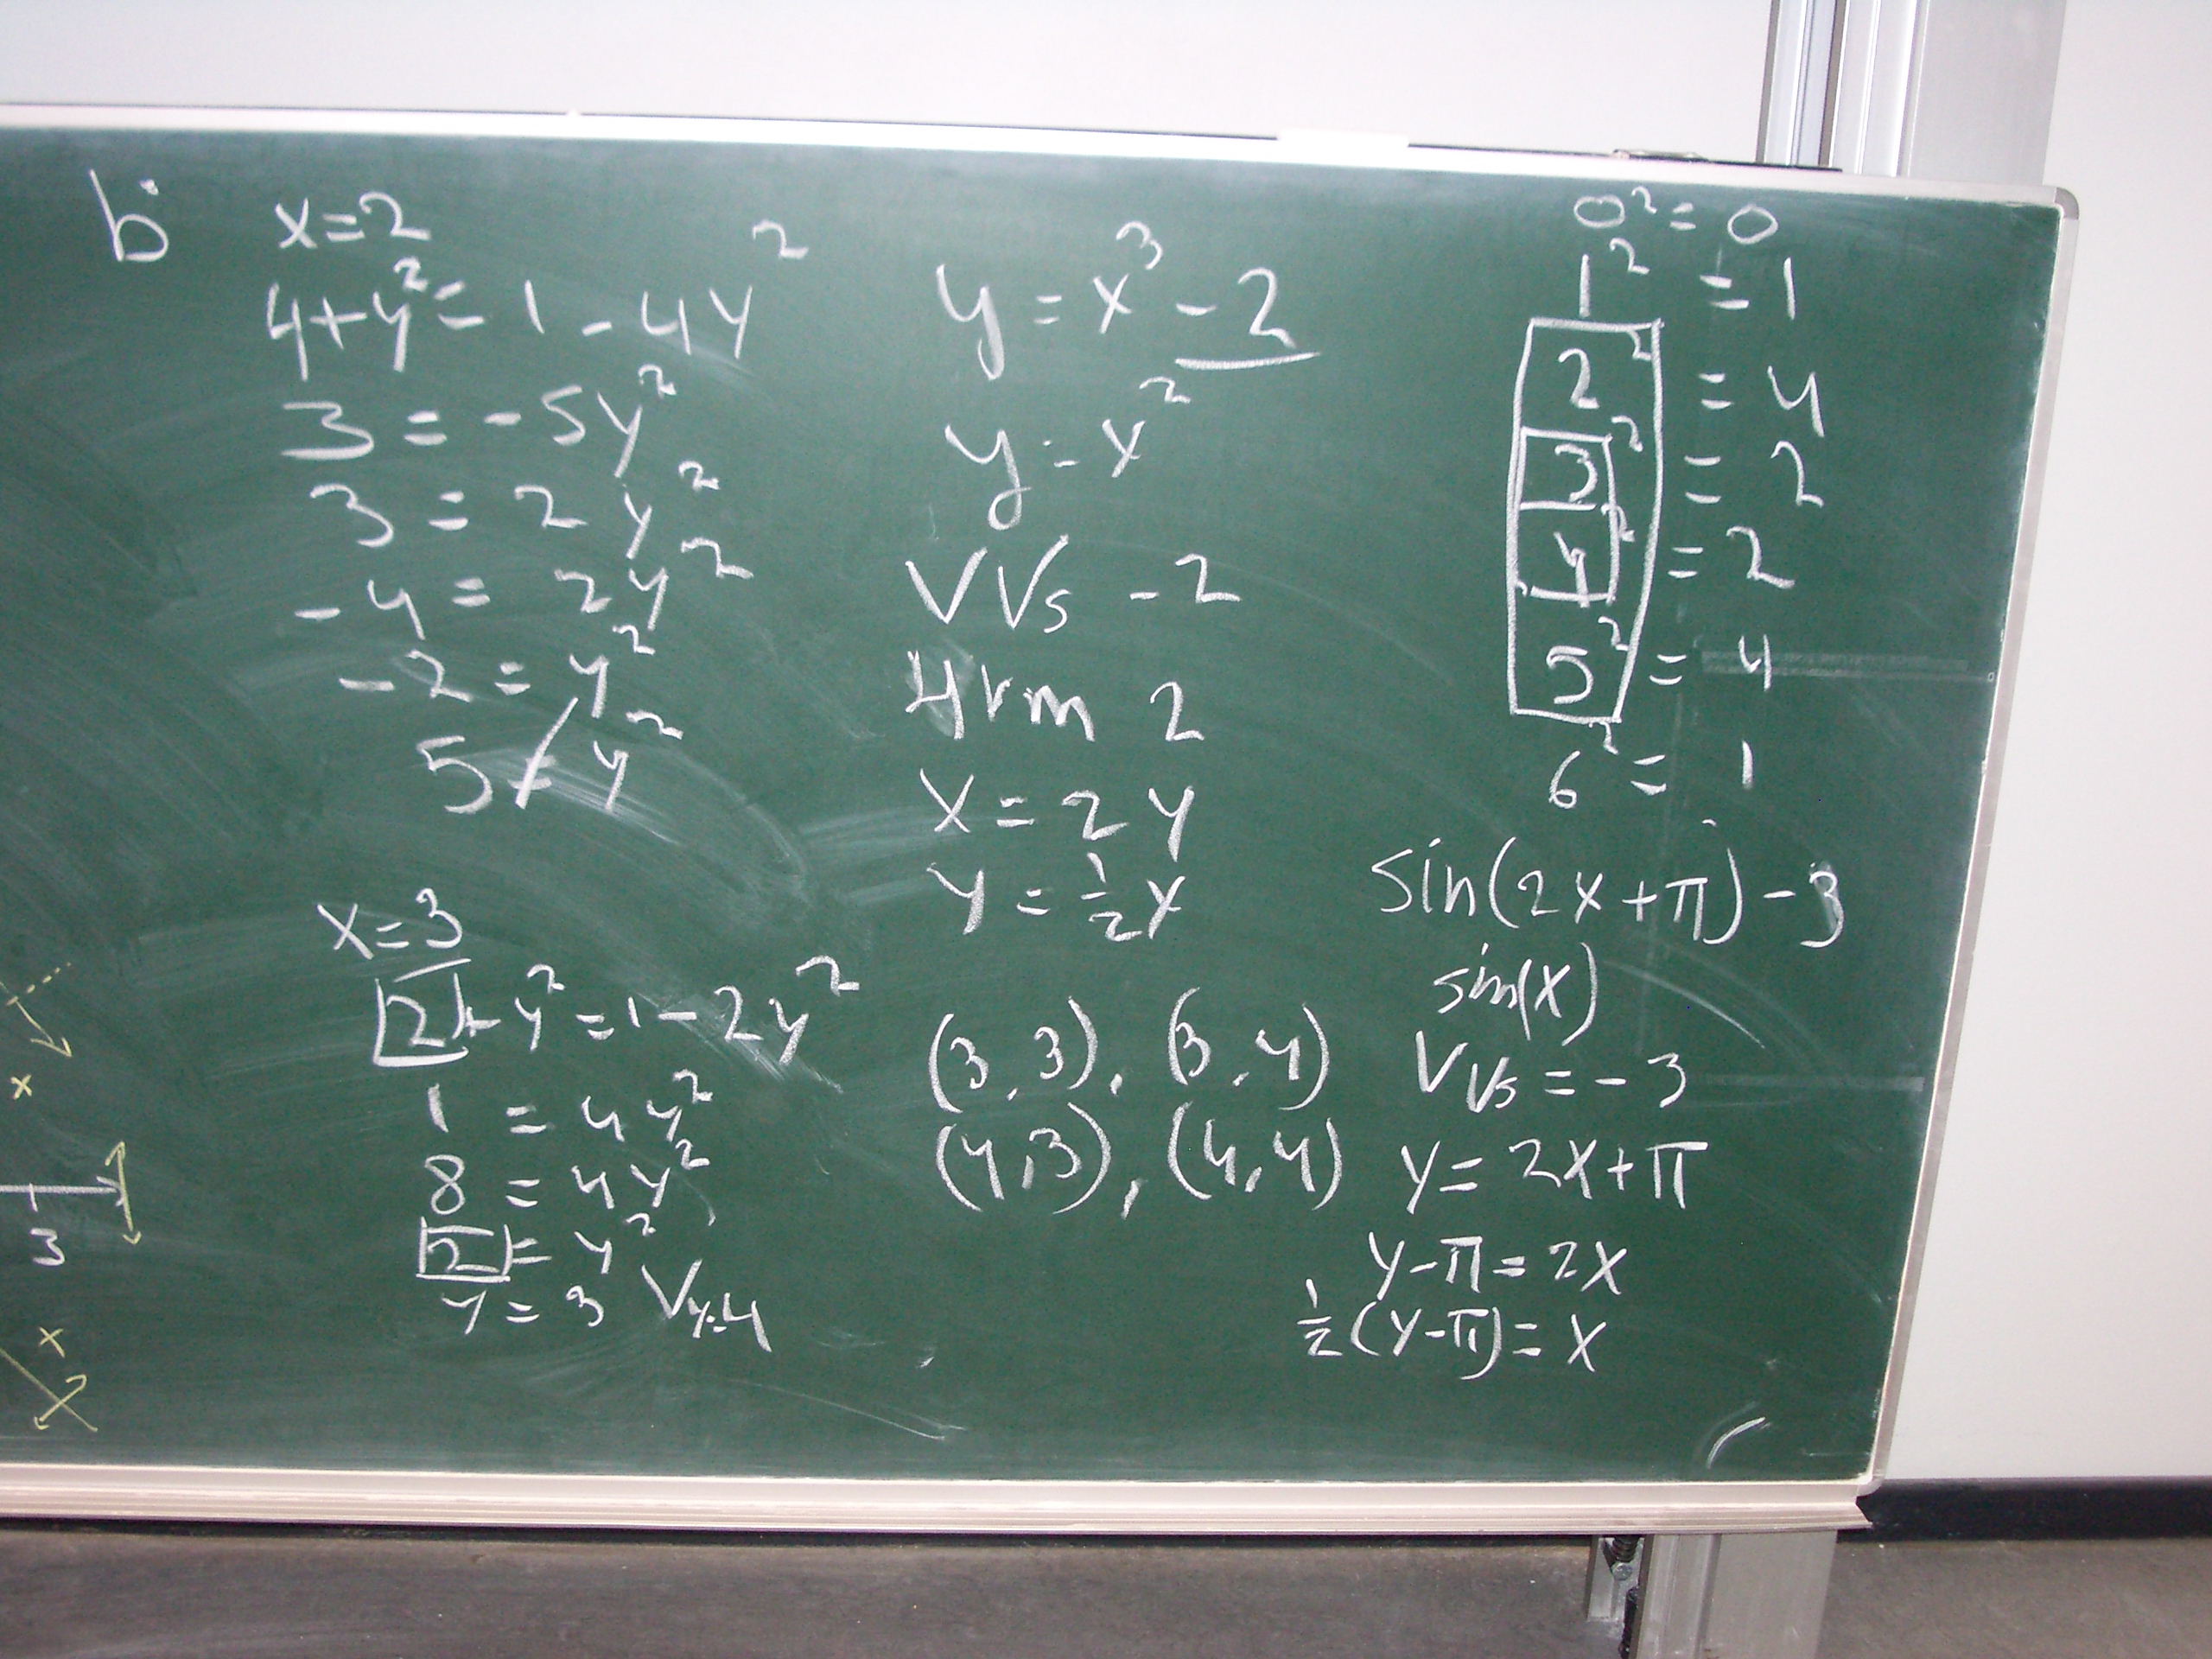 b
x=2
4+y²=1-4y²
3=-5y²
3=2y²
-4=2y²
-2=y²
5≠y²
x=3
2+y²=1-2y²
1=4y²
8=4y²
2=y²
y=3 V y=4
y=x³-2
y=x²
VVs -2
Hvm 2
x=2y
y=½x
(3,3), (3,4)
(4,3), (4,4)
0²=0
1²=1
2²=4
3²=2
4²=2
5²=4
6²=1
sin(2x+π)-3
sin(x)
VVs=-3
y=2x+π
y-π=2x
½(y-π)=x
x
3
x